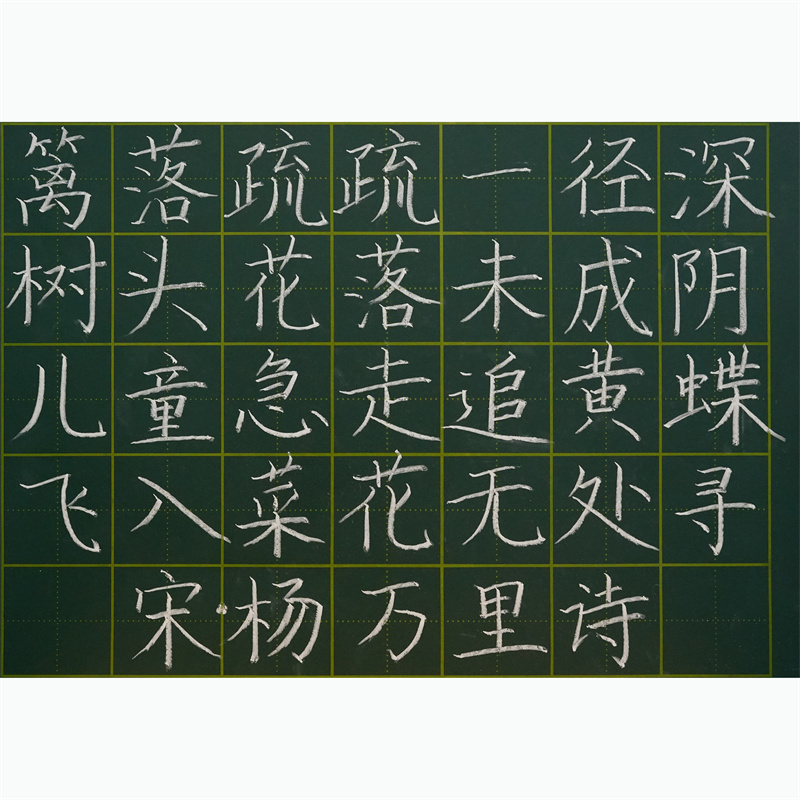 篱落疏疏一径深
树头花落未成阴
儿童急走追黄蝶
飞入菜花无处寻
宋·杨万里诗